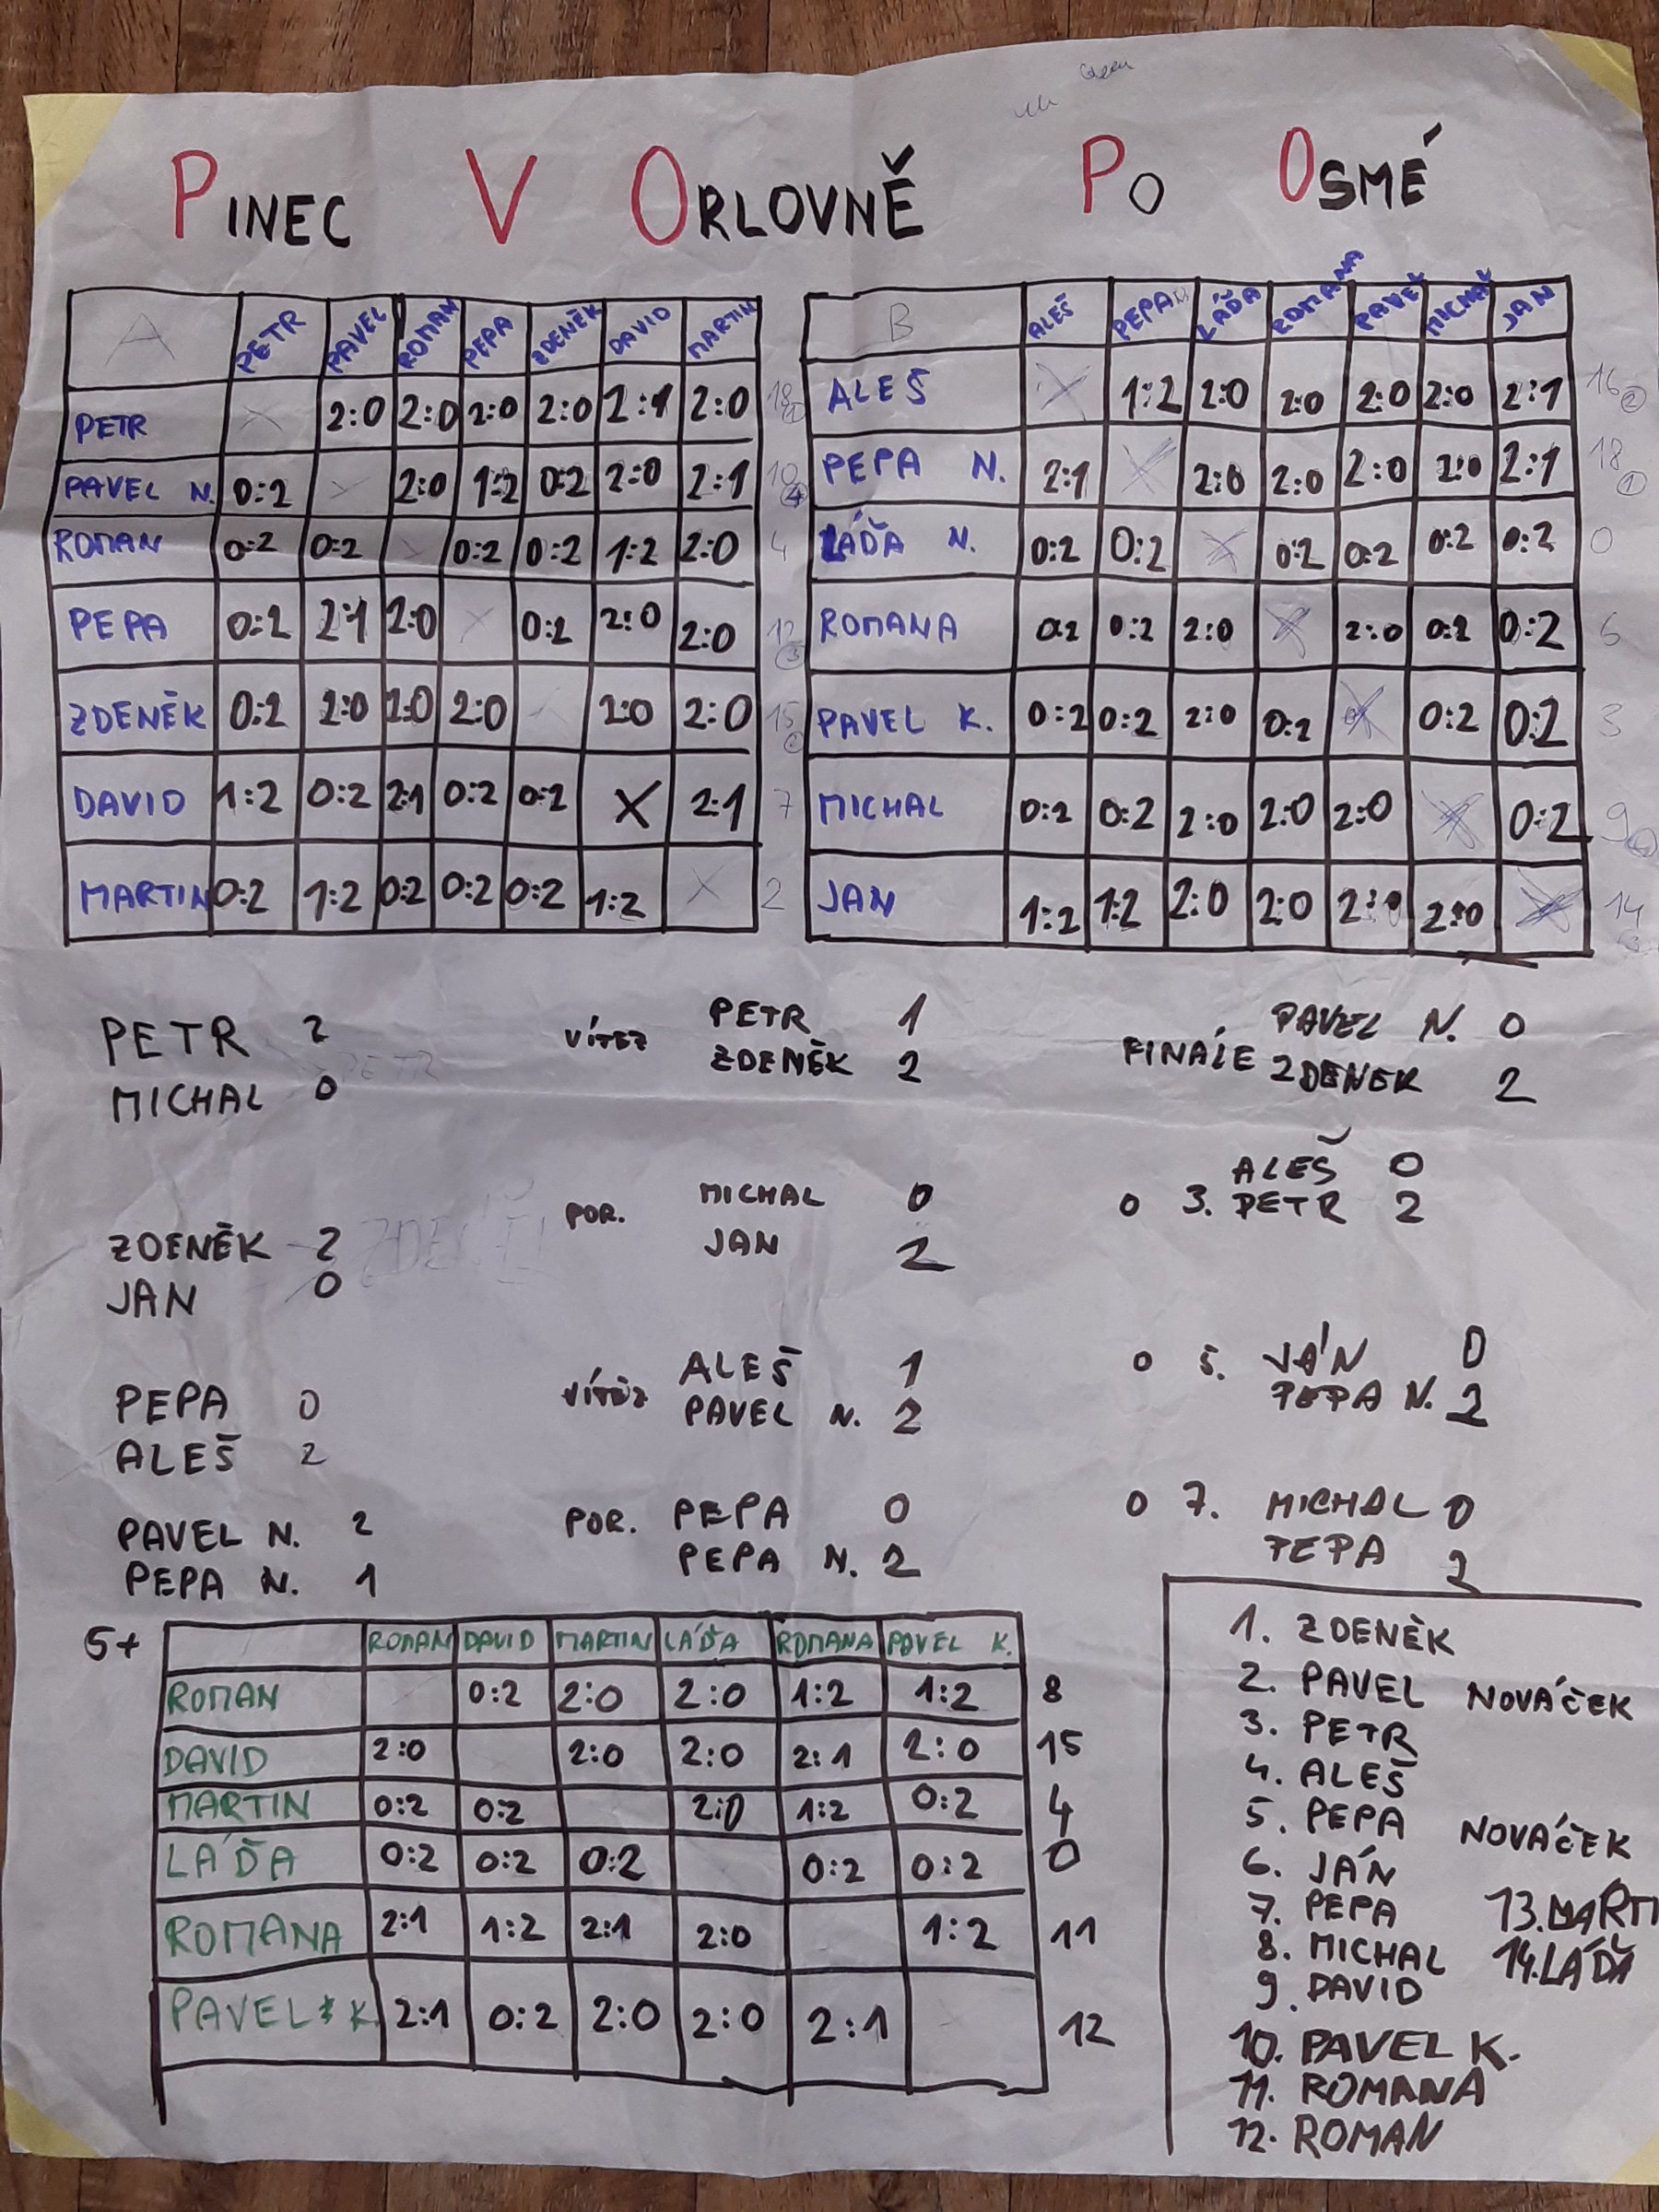 PINEC V ORLOVNĚ PO OSMÉ
A PETR PAVEL ROMAN PEPA ZDENĚK DAVID MARTIN
PETR X 2:0 2:0 2:0 2:0 2:1 2:0 18 1
PAVEL N. 0:2 X 2:0 1:2 0:2 2:0 2:1 10 4
ROMAN 0:2 0:2 X 0:2 0:2 1:2 2:0 4
PEPA 0:2 2:1 2:0 X 0:2 2:0 2:0 12 3
ZDENĚK 0:2 2:0 2:0 2:0 X 2:0 2:0 15
DAVID 1:2 0:2 2:1 0:2 0:2 X 2:1 7
MARTIN 0:2 1:2 0:2 0:2 0:2 1:2 X 2
B ALEŠ PEPA N. LÁĎA ROMANA PAVEL MICHAL JAN
ALEŠ X 1:2 2:0 2:0 2:0 2:0 2:1 16 2
PEPA N. 2:1 X 2:0 2:0 2:0 2:0 2:1 18 1
LÁĎA N. 0:2 0:2 X 0:2 0:2 0:2 0:2 0
ROMANA 0:2 0:2 2:0 X 2:0 0:2 0:2 6
PAVEL K. 0:2 0:2 2:0 0:2 X 0:2 0:2 3
MICHAL 0:2 0:2 2:0 2:0 2:0 X 0:2 9
JAN 1:2 1:2 2:0 2:0 2:0 2:0 X 14
PETR 2
MICHAL 0
PETR
VÍTĚZ PETR 1
ZDENĚK 2
FINÁLE PAVEL N. 0
ZDENEK 2
ZDENĚK 2
JAN 0
ZDENĚK
POR. MICHAL 0
JAN 2
ALEŠ 0
O 3. PETR 2
PEPA 0
ALEŠ 2
VÍTĚZ ALEŠ 1
PAVEL N. 2
O 5. JÁN 0
PEPA N. 2
PAVEL N. 2
PEPA N. 1
POR. PEPA 0
PEPA N. 2
O 7. MICHAL 0
PEPA 2
5+ ROMAN DAVID MARTIN LÁĎA ROMANA PAVEL K.
ROMAN 0:2 2:0 2:0 1:2 1:2 8
DAVID 2:0 2:0 2:0 2:1 2:0 15
MARTIN 0:2 0:2 2:0 1:2 0:2 4
LÁĎA 0:2 0:2 0:2 0:2 0:2 0
ROMANA 2:1 1:2 2:1 2:0 1:2 11
PAVEL K. 2:1 0:2 2:0 2:0 2:1 12
1. ZDENĚK
2. PAVEL NOVÁČEK
3. PETR
4. ALEŠ
5. PEPA NOVÁČEK
6. JÁN
7. PEPA
8. MICHAL
9. DAVID
10. PAVEL K.
11. ROMANA
12. ROMAN
13. MARTI
14. LÁĎA